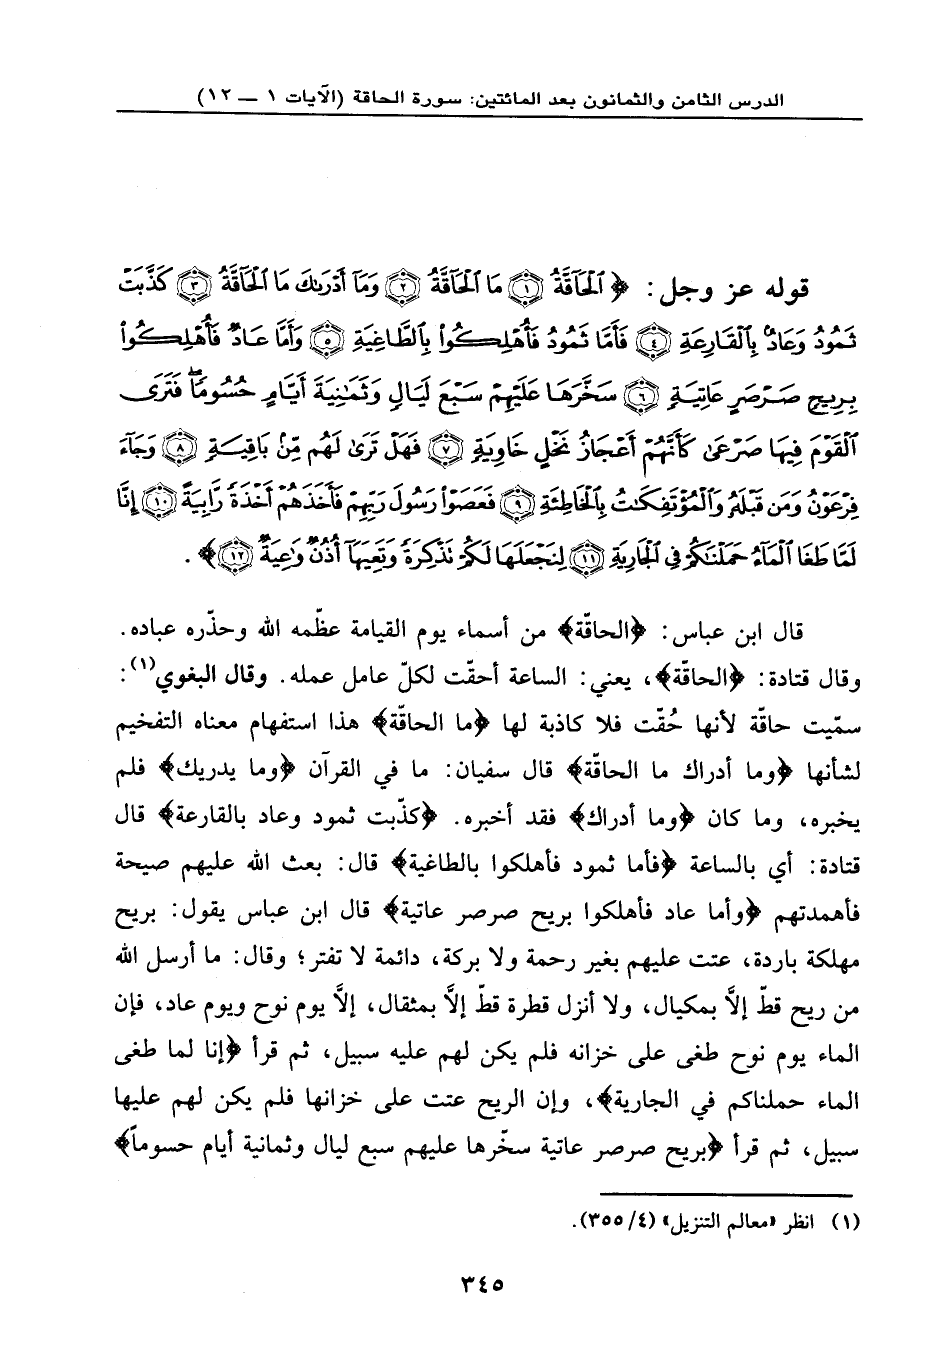 الدرس الثامن والثمانون بعد المائتين: سورة الحاقة (الآيات ١ — ١٢)
قوله عز وجل: ﴿ ٱلْحَآقَّةُ ۝١ مَا ٱلْحَآقَّةُ ۝٢ وَمَآ أَدْرَىٰكَ مَا ٱلْحَآقَّةُ ۝٣ كَذَّبَتْ
ثَمُودُ وَعَادٌۢ بِٱلْقَارِعَةِ ۝٤ فَأَمَّا ثَمُودُ فَأُهْلِكُوا۟ بِٱلطَّاغِيَةِ ۝٥ وَأَمَّا عَادٌ فَأُهْلِكُوا۟
بِرِيحٍ صَرْصَرٍ عَاتِيَةٍ ۝٦ سَخَّرَهَا عَلَيْهِمْ سَبْعَ لَيَالٍ وَثَمَٰنِيَةَ أَيَّامٍ حُسُومًاۖ فَتَرَى
ٱلْقَوْمَ فِيهَا صَرْعَىٰ كَأَنَّهُمْ أَعْجَازُ نَخْلٍ خَاوِيَةٍ ۝٧ فَهَلْ تَرَىٰ لَهُم مِّنۢ بَاقِيَةٍ ۝٨ وَجَآءَ
فِرْعَوْنُ وَمَن قَبْلَهُۥ وَٱلْمُؤْتَفِكَٰتُ بِٱلْخَاطِئَةِ ۝٩ فَعَصَوْا۟ رَسُولَ رَبِّهِمْ فَأَخَذَهُمْ أَخْذَةً رَّابِيَةً ۝١٠ إِنَّا
لَمَّا طَغَا ٱلْمَآءُ حَمَلْنَٰكُمْ فِى ٱلْجَارِيَةِ ۝١١ لِنَجْعَلَهَا لَكُمْ تَذْكِرَةً وَتَعِيَهَآ أُذُنٌ وَٰعِيَةٌ ۝١٢﴾ .
قال ابن عباس: ﴿الحاقّة﴾ من أسماء يوم القيامة عظّمه الله وحذّره عباده.
وقال قتادة: ﴿الحاقّة﴾، يعني: الساعة أحقّت لكلّ عامل عمله. وقال البغوي(١):
سمّيت حاقّة لأنها حُقّت فلا كاذبة لها ﴿ما الحاقّة﴾ هذا استفهام معناه التفخيم
لشأنها ﴿وما أدراك ما الحاقّة﴾ قال سفيان: ما في القرآن ﴿وما يدريك﴾ فلم
يخبره، وما كان ﴿وما أدراك﴾ فقد أخبره. ﴿كذّبت ثمود وعاد بالقارعة﴾ قال
قتادة: أي بالساعة ﴿فأما ثمود فأهلكوا بالطاغية﴾ قال: بعث الله عليهم صيحة
فأهمدتهم ﴿وأما عاد فأهلكوا بريح صرصر عاتية﴾ قال ابن عباس يقول: بريح
مهلكة باردة، عتت عليهم بغير رحمة ولا بركة، دائمة لا تفتر؛ وقال: ما أرسل الله
من ريح قطّ إلاَّ بمكيال، ولا أنزل قطرة قطّ إلاَّ بمثقال، إلاَّ يوم نوح ويوم عاد، فإن
الماء يوم نوح طغى على خزانه فلم يكن لهم عليه سبيل، ثم قرأ ﴿إنا لما طغى
الماء حملناكم في الجارية﴾، وإن الريح عتت على خزانها فلم يكن لهم عليها
سبيل، ثم قرأ ﴿بريح صرصر عاتية سخّرها عليهم سبع ليال وثمانية أيام حسوماً﴾
(١) انظر «معالم التنزيل» (٤/٣٥٥).
٣٤٥